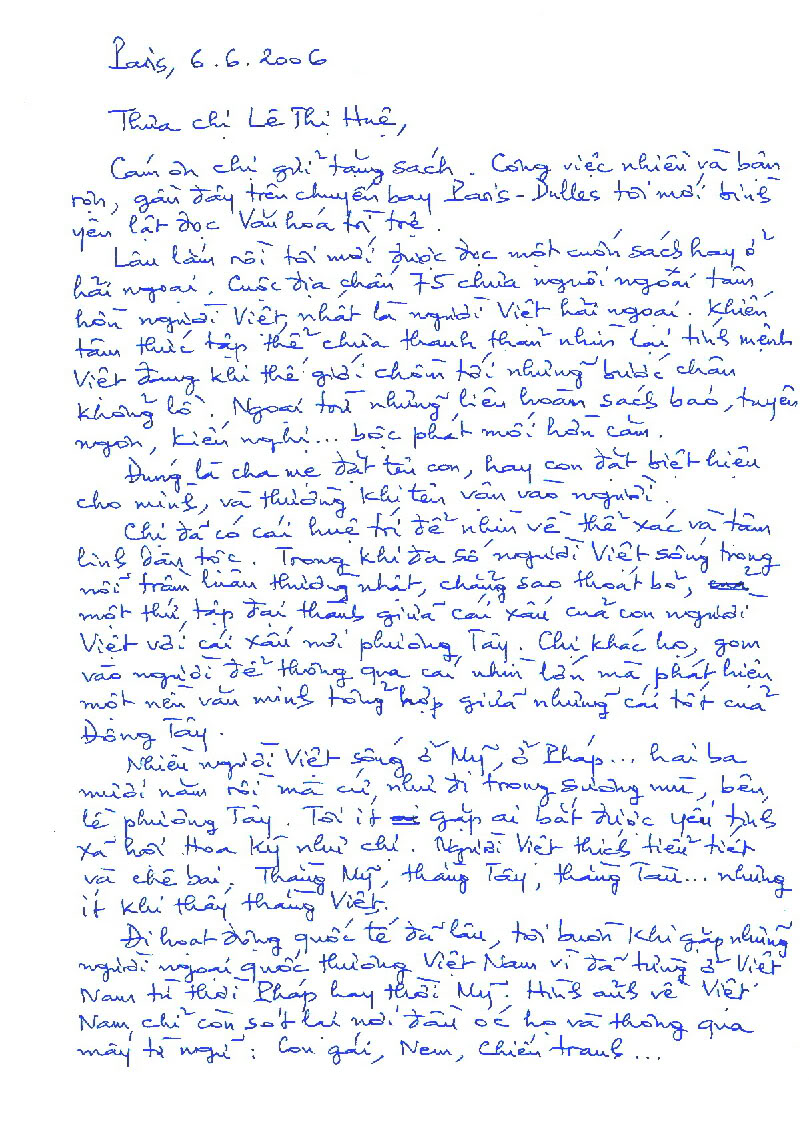 Paris, 6.6.2006
Thưa chị Lê Thị Huệ,
Cám ơn chị gửi tặng sách. Công việc nhiều và bận
rộn, gần đây trên chuyến bay Paris-Dulles tôi mới bình
yên lật đọc Văn hoá trì trệ.
Lâu lắm rồi tôi mới được đọc một cuốn sách hay ở
hải ngoại. Cuộc địa chấn 75 chưa nguôi ngoai tâm
hồn người Việt, nhất là người Việt hải ngoại. Khiến
tâm thức tập thể chưa thanh thản nhìn lại tính mệnh
Việt đang khi thế giới chồm tới những bước chân
khổng lồ. Ngoại trừ những liên hoàn sách báo, tuyên
ngôn, kiến nghị... bộc phát mối hờn căm.
Đúng là cha mẹ đặt tên con, hay con đặt biệt hiệu
cho mình, và thường khi tên vận vào người.
Chị đã có cái huệ trí để nhìn về thể xác và tâm
linh dân tộc. Trong khi đa số người Việt sống trong
nỗi trầm luân thường nhật, chẳng sao thoát bỏ,
một thứ tập đại thành giữa cái xấu của con người
Việt với cái xấu nơi phương Tây. Chị khác họ, gom
vào người để thông qua cái nhìn lớn mà phát hiện
một nền văn minh tổng hợp giữa những cái tốt của
Đông Tây.
Nhiều người Việt sống ở Mỹ, ở Pháp... hai ba
mươi năm rồi mà cứ như đi trong sương mù, bên
lề phương Tây. Tôi ít gặp ai bắt được yếu tính
xã hội Hoa Kỳ như chị. Người Việt thích tiểu tiết
và chê bai, Thằng Mỹ, thằng Tây, thằng Tàu... nhưng
ít khi thấy thằng Việt.
Đi hoạt động quốc tế đã lâu, tôi buồn khi gặp những
người ngoại quốc thương Việt Nam vì đã từng ở Việt
Nam từ thời Pháp hay thời Mỹ. Hình ảnh về Việt
Nam, chỉ còn sót lại nơi đầu óc họ và thông qua
mấy từ ngữ: Con gái, Nem, Chiến tranh...